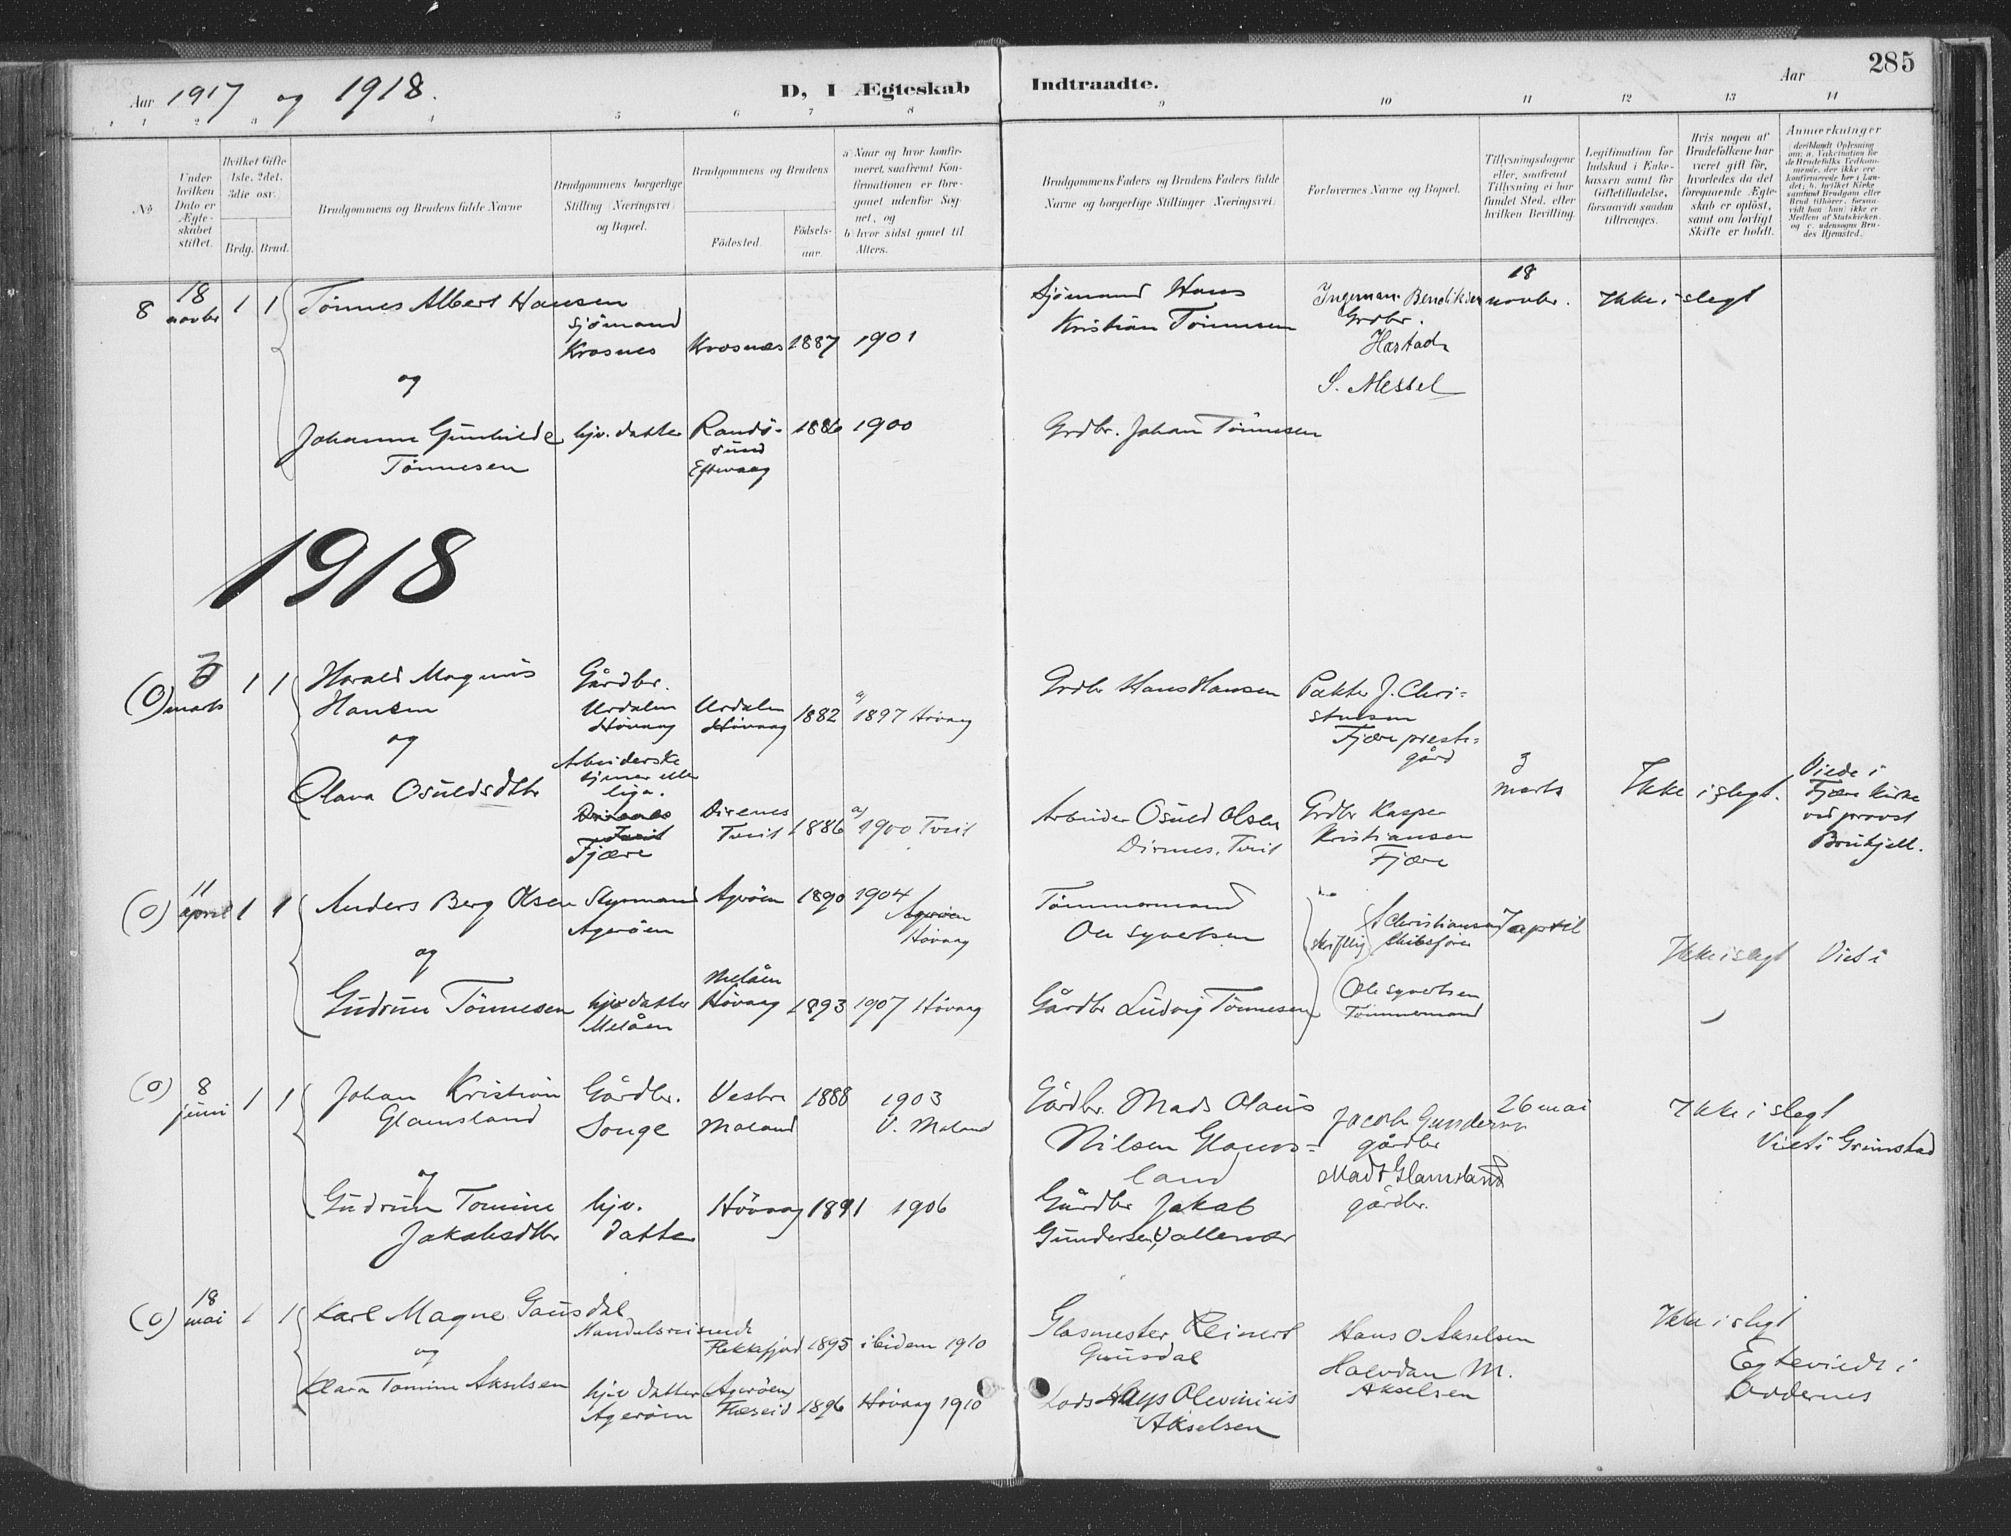 285
Aar 1917 og 1918.
D, I Ægteskab Indtraadte.
Aar
1 2 3 4 5 6 7 8 9 10 11 12 13 14
No
Under hvilken Dato er Ægteskabet stiftet.
Hvilket Gifte 1ste, 2det, 3die osv.
Brdg. Brud.
Brudgommens og Brudens fulde Navne
Brudgommens borgerlige Stilling (Næringsvei) og Bopæl.
Brudgommens og Brudens
Fødested.
Fødselsaar.
a: Naar og hvor konfirmeret, saafremt Konfirmationen er foregaaet udenfor Sognet, og
b: hvor sidst gaaet til Alters.
Brudgommens Faders og Brudens Faders fulde Navne og borgerlige Stillinger (Næringsvei)
Forlovernes Navne og Bopæl.
Tillysningsdagene eller, saafremt Tillysning ei har fundet Sted, efter hvilken Bevilling.
Legitimation for Indskud i Enkekassen samt for Giftetilladelse, forsaavidt saadan tiltrænges.
Hvis nogen af Brudefolkene har været gift før, hvorledes da det foregaaende Ægteskab er opløst, samt om lovligt Skifte er holdt.
Anmerkninger
8 18 novbr 1 1 Tönnes Albert Hansen
sjömand
Krosnes Krosnes 1887 1901
Sjömand Hans
Kristian Tönnesen
Ingeman Bendiksen
Grdbr.
Hæstad
S. Messel
18 novbr. Ikke i slegt
og
Johanne Gunhilde
Tönnesen
hjv. datter Randö-
sund
Eftevaag 1886 1900
Grdbr. Johan Tönnesen
1918
(0) marts 1 1 Harald Magnus
Hansen
Gårdbr.
Urdalen
Hövaag
Urdalen
Hövaag 1882 a/ 1897 Hövaag
Grdbr Hans Hansen
J. Chri-
stensen
Fjære preste-
gård
og
Olava Osuldsdtbr
Fjære
Direnes
Tveit 1886 a/ 1900 Tveit
Arbeider Osuld Olsen
Dirnes. Tveit
Grdbr Kasper
Kristiansen
Fjære
marts
Ikke i slegt.
Viede i
Fjære kirke
ved provst
(0) 11 april 1 1 Anders Berg Olsen
Styrmand
Ageröen
Agröen 1890 1904
Agerøen
Hövaag
Tömmermand
Ole Syvertsen
skriftlig
A Christiansen
Skibsförer
7 april
Ikke i slegt Viet i
og
Gudrun Tönnesen
hjv datter
Melåen
Melåen
Hövaag 1893 1907 Hövaag
Gårdbr Ludvig Tönnesen
Ole Syvertsen
Tömmermand
(0) 8 juni 1 1 Johan Kristian
Glamsland
Gårdbr.
Songe
Vestre
Moland 1888 1903
V. Moland
Gårdbr. Mads Olaus
Nilsen Glams-
land
Jacob Gundersen
gårdbr
Mads Glamsland
gårdbr.
26 mai
Ikke i slegt
Viet i Grimstad
og
Gudrun Tomine
Jakobsdtbr
hjv.
datter
Hövaag 1891 1906
Gårdbr Jakob
Gundersen, Vallesvær
(0) 18 mai 1 1 Karl Magne Gausdal
Handelsreisende
Flekkefjord 1895 ibidem 1910
Glasmester Reinert
Gausdal
Hans O Akselsen
Halvdan M.
Akselsen
Ikke i slegt
Egteviede i
Oddernes
og
Klara Tomine Akselsen
hjv datter
Agerøen
Agerøen
1896 Hövaag 1910
Lods Hans Olevinius
Akselsen